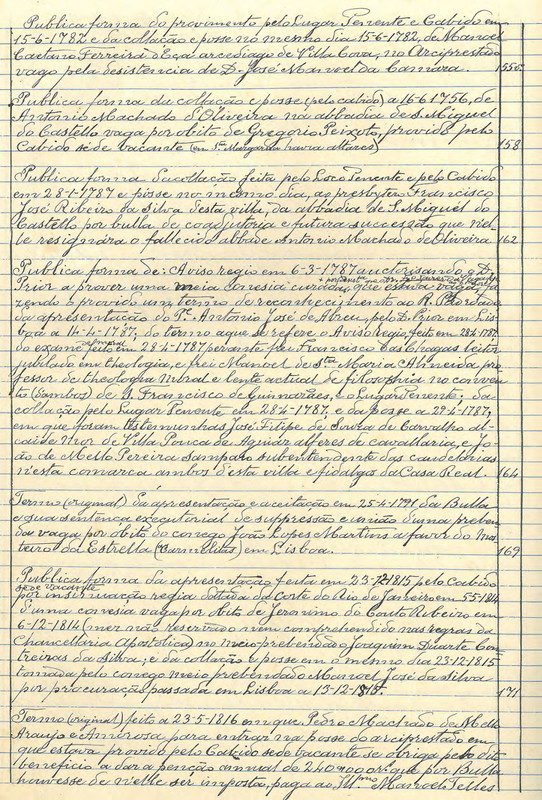 Publica forma do provimento pelo Lugar Tenente e Cabido em
15-6-1782 e da collação e posse no mesmo dia 15-6-1782, de Manoel
Caetano Ferreira d'Eça arcediago de Villa Cova, no Arciprestado
vago pela desistencia de D. José Manoel da Camara. 155v.
Publica forma da collação e posse (pelo cabido) a 16-6-1756, de
Antonio Machado d'Oliveira na abbadia de S. Miguel
do Castello vaga por obito de Gregorio Peixoto, provido pelo
Cabido séde vacante (em Stª Margarida havia altares) 158
Publica forma da collação feita pelo Loco Tenente e pelo Cabido
em 28-1-1787 e posse no mesmo dia, ao presbytero Francisco
José Ribeiro da Silva desta villa, da abbadia de S. Miguel do
Castello por bulla de coadjutoria e futura successão que nel-
le resignára o fallecido abbade Antonio Machado de Oliveira 162
Publica forma de: Aviso regio em 6-3-1787 auctorisando o D.
Prior a prover uma meia conesia curada, que estava vaga fa-
zendo o provido um termo de reconhecimento ao R. Padroado
da apresentação do Pe. Antonio José de Abreu, pelo D. Prior em Lis-
boa a 14-4-1787; do termo a que se refere o Aviso Regio, feito em 28-4-1787;
do exame de moral feito em 28-4-1787 perante frei Francisco das Chagas leitor
jubilado em theologia, e frei Manoel de Stª Maria Almeida pro-
fessor de theologia moral e lente actual de filosophia no conven-
to (ambos) de S. Francisco de Guimarães, e o Lugar Tenente; da
collação pelo Lugar Tenente em 28-4-1787, e da posse a 29-4-1787,
em que foram testemunhas José Filipe de Souza de Carvalho al-
caide mor de Villa Pouca de Aguiar alferes de cavallaria, e Jo-
ão de Mello Pereira Sampaio subentendente das caudelarias
n'esta comarca ambos desta villa e fidalgos da Casa Real. 164
Termo (original) da apresentação e aceitação em 25-4-1791 da Bulla
e sua sentença executorial de suppressão e união d'uma preben-
da vaga por obito do conego João Lopes Martins a favor do mos-
teiro da Estrella (Carmelitas) em Lisboa. 169
Publica forma da apresentação feita em 23-12-1815 pelo Cabido
séde vacante
por insinuação regia datada da corte do Rio de Janeiro em
d'uma conesia vaga por obito de Jeronimo do Couto Ribeiro em
6-12-1814 (mez não reservado nem comprehendido nas regras da
Chancellaria Apostolica) no meio-prebendado Joaquim Duarte Con-
treiras da Silva; e da collação e posse em o mesmo dia 23-12-1815
tomada pelo conego meio prebendado Manoel José da Silva
por procuração passada em Lisboa a 13-12-1815. 171
Termo (original) feito a 23-5-1816 em que Pedro Machado de Mello
Araujo e Amorosa para entrar na posse do arciprestado em
que estava provido pelo Cabido sede vacante se obriga pelo dito
beneficio a dar a pensão annual de 240$000 rs que por Bulla
houvesse de n'elle ser imposta, paga ao Illmo Marcos Telles